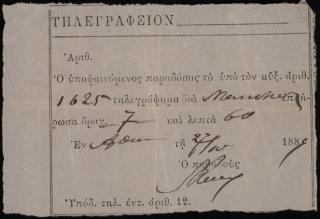 ΤΗΛΕΓΡΑΦΕΙΟΝ
Ἀριθ.
Ὁ ὑποφαινόμενος παραδόσας τὸ ὑπὸ τὸν αὔξ. ἀριθ.
1625 τηλεγράφημα διὰ ἐπλή-
ρωσα δραχ. 7 καὶ λεπτὰ 60
Ἐν τῇ 188
Ὁ παραδοὺς
Ὑπόδ. τηλ. ἐντ. ἀριθ. 12.